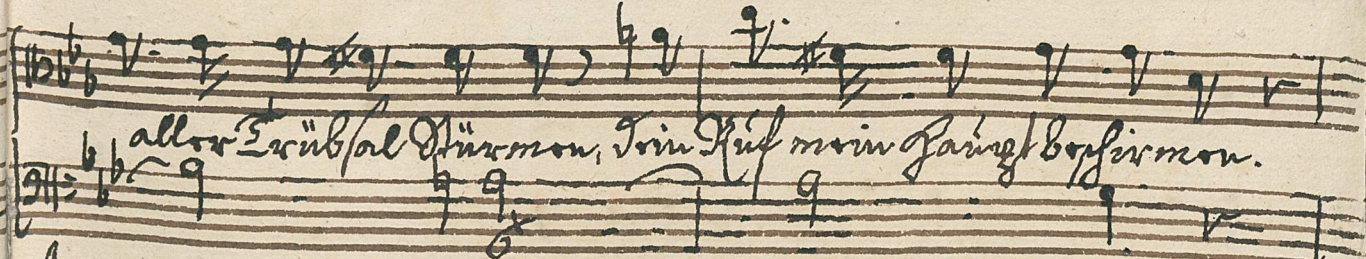 aller Trübsal Stürmen, dein Ruf mein Haupt beschirmen.
6